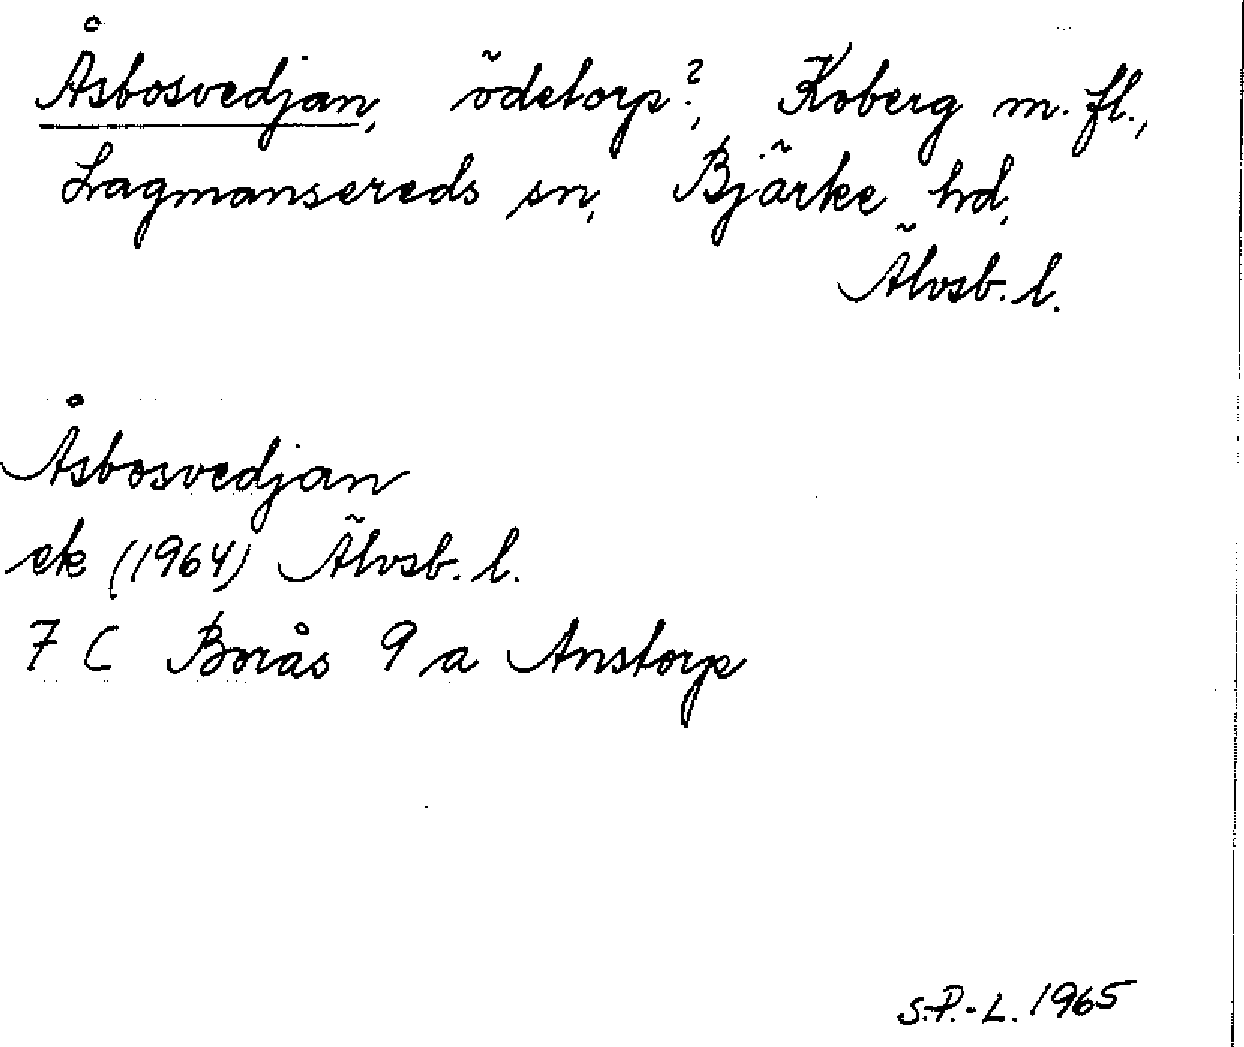 Åsbosvedjan, ödetorp?, Koberg m. fl.,
Lagmansereds sn, Bjärke hd,
Älvsb. l.
Åsbosvedjan
ek (1964) Älvsb. l.
7 C Borås 9 a Anstorp
S.P.-L. 1965